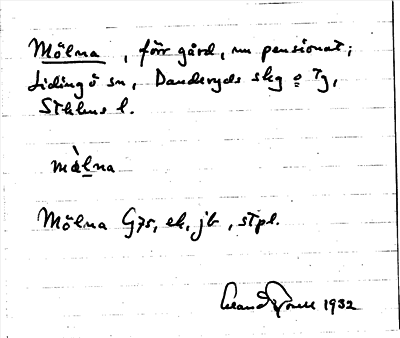 Mölna, förr gård, nu pensionat;
Lidingö sn, Danderyds skg o Tg,
Sthlms l.
mȧ̀lna
Mölna G7r, ek, jb, stpl.
1932